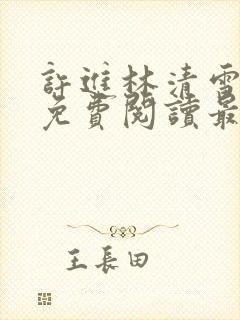 許進林清雪
免費閱讀最
王長田